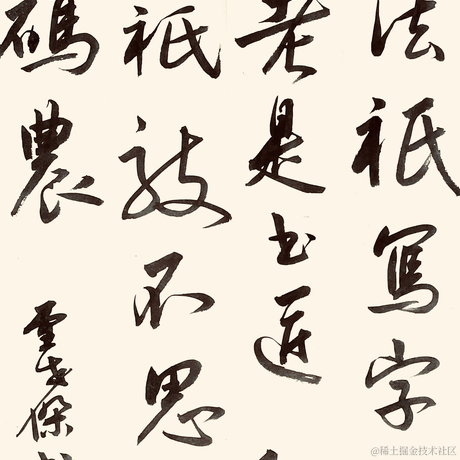 法祇寫字
老是书匠
祇敲不思
碼農
@稀土掘金技术社区